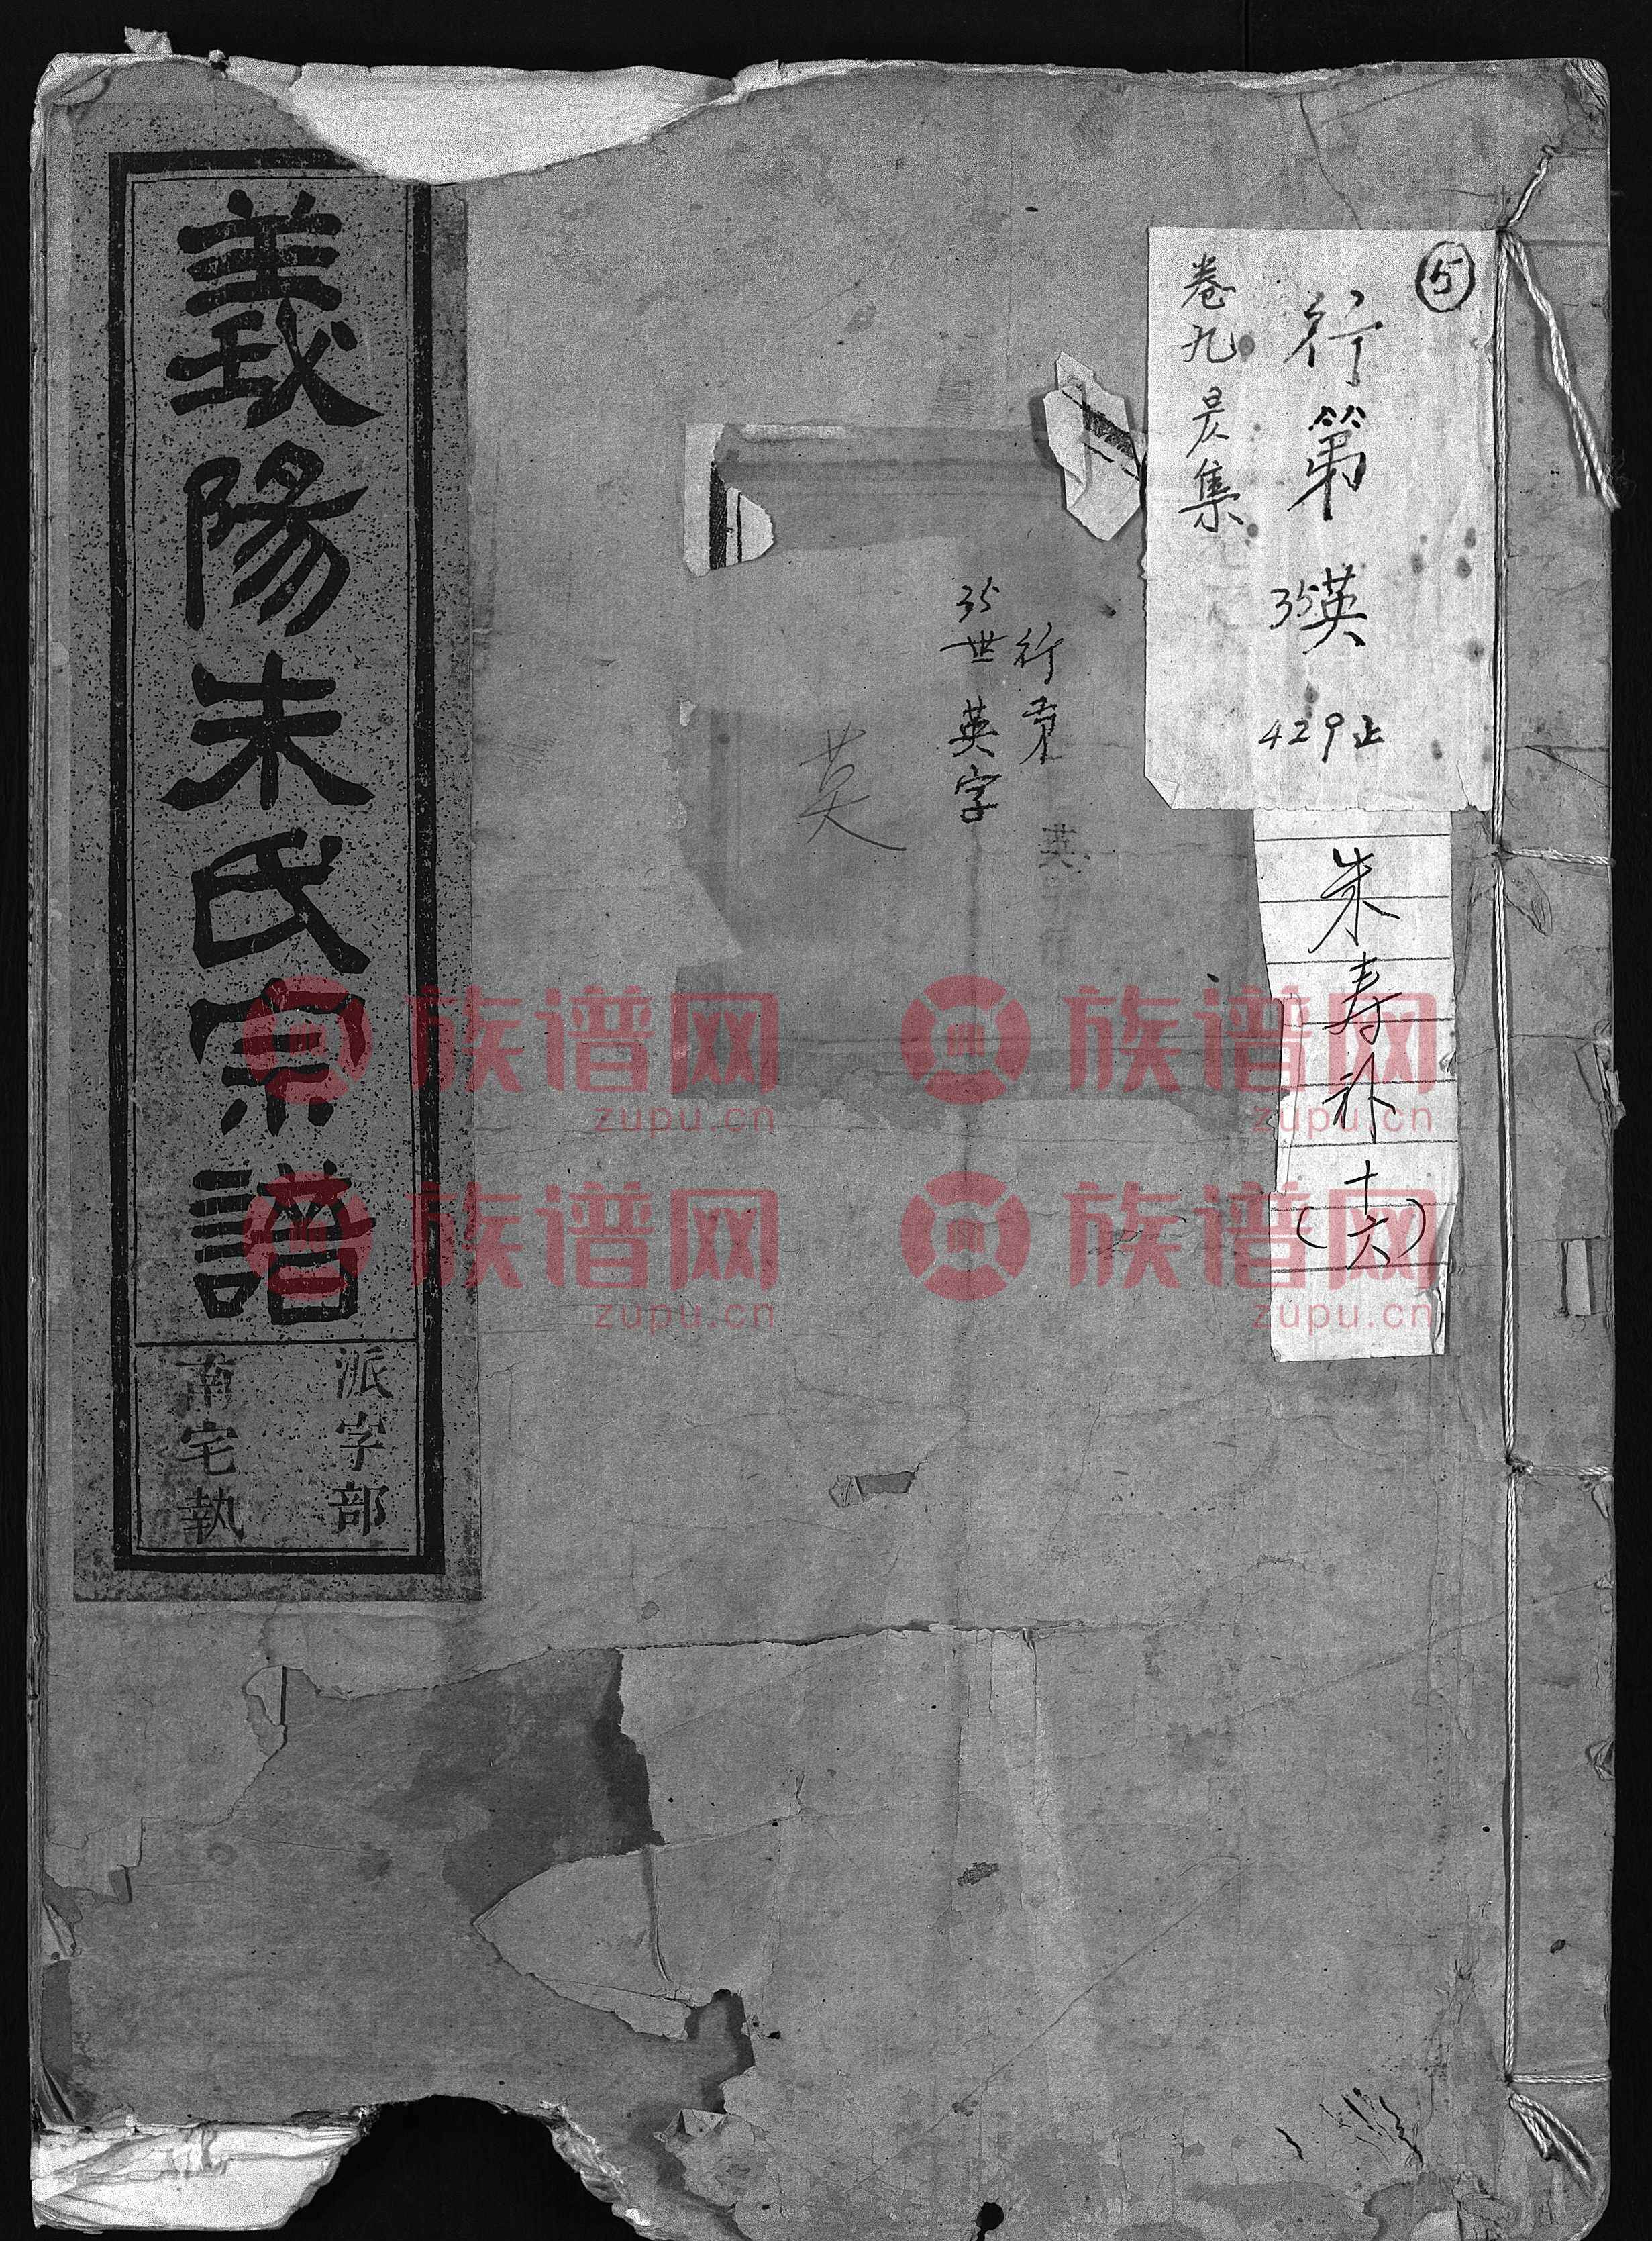 ⑤
行第
35英
429止
卷九 昃集
朱寿礽
(十六)
行第 英
35世英字
英
義陽朱氏宗譜
派字部
南宅執
族谱网
zupu.cn
族谱网
zupu.cn
族谱网
zupu.cn
族谱网
zupu.cn